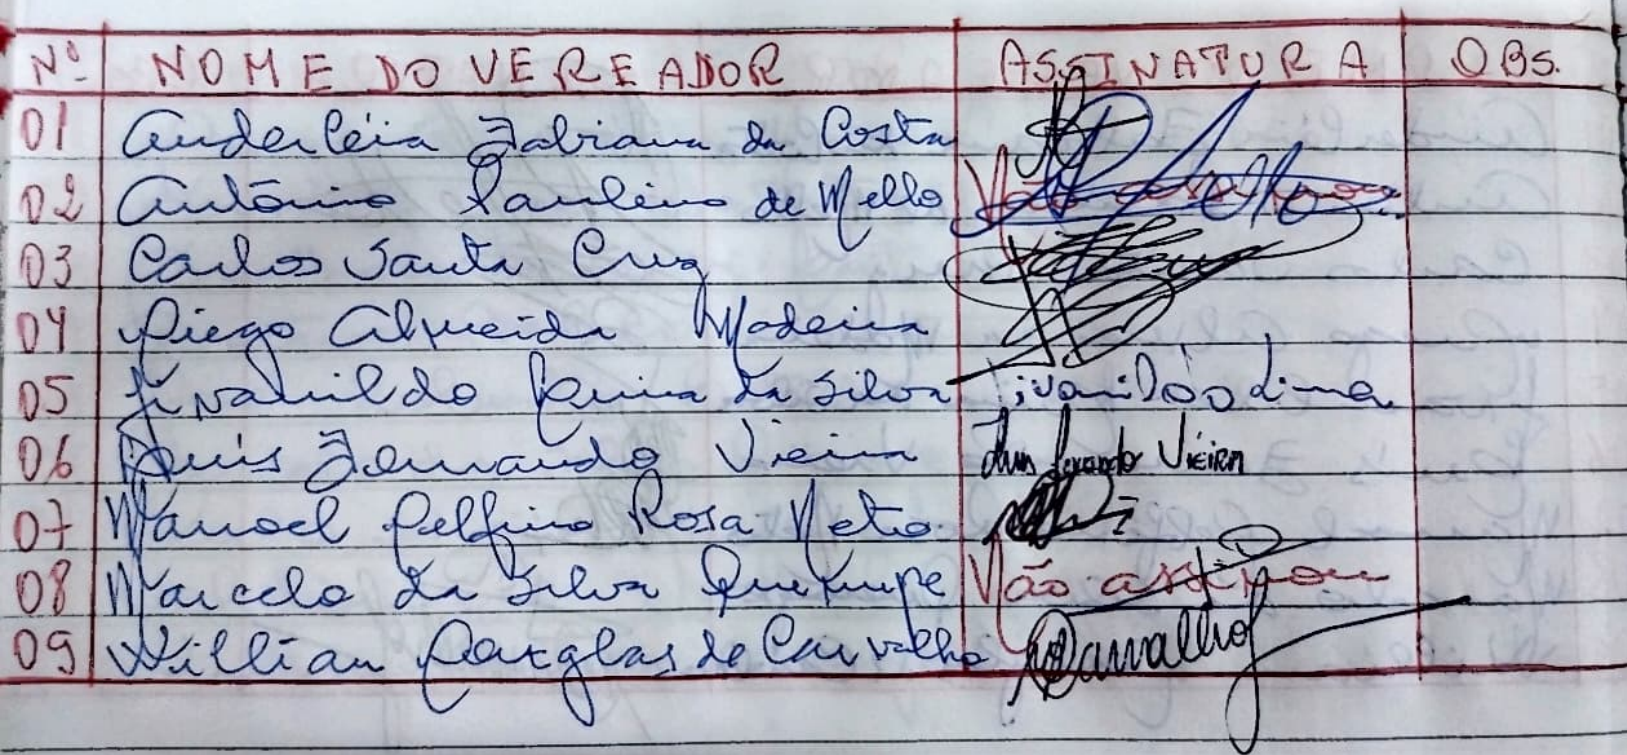 Nº NOME DO VEREADOR ASSINATURA OBS.
01 Anderléia Fabiana da Costa
02 Antônio Paulino de Mello Não assinou
03 Carlos Santa Cruz
04 Diego Almeida Madeira
05 Jivanildo da Silva Jivanildo Lima
06 Luís Fernando Vieira Luis Fernando Vieira
07 Manoel Delfino Rosa Neto
08 Marcelo da Silva Não assinou
09 Willian Douglas de Carvalho Carvalho